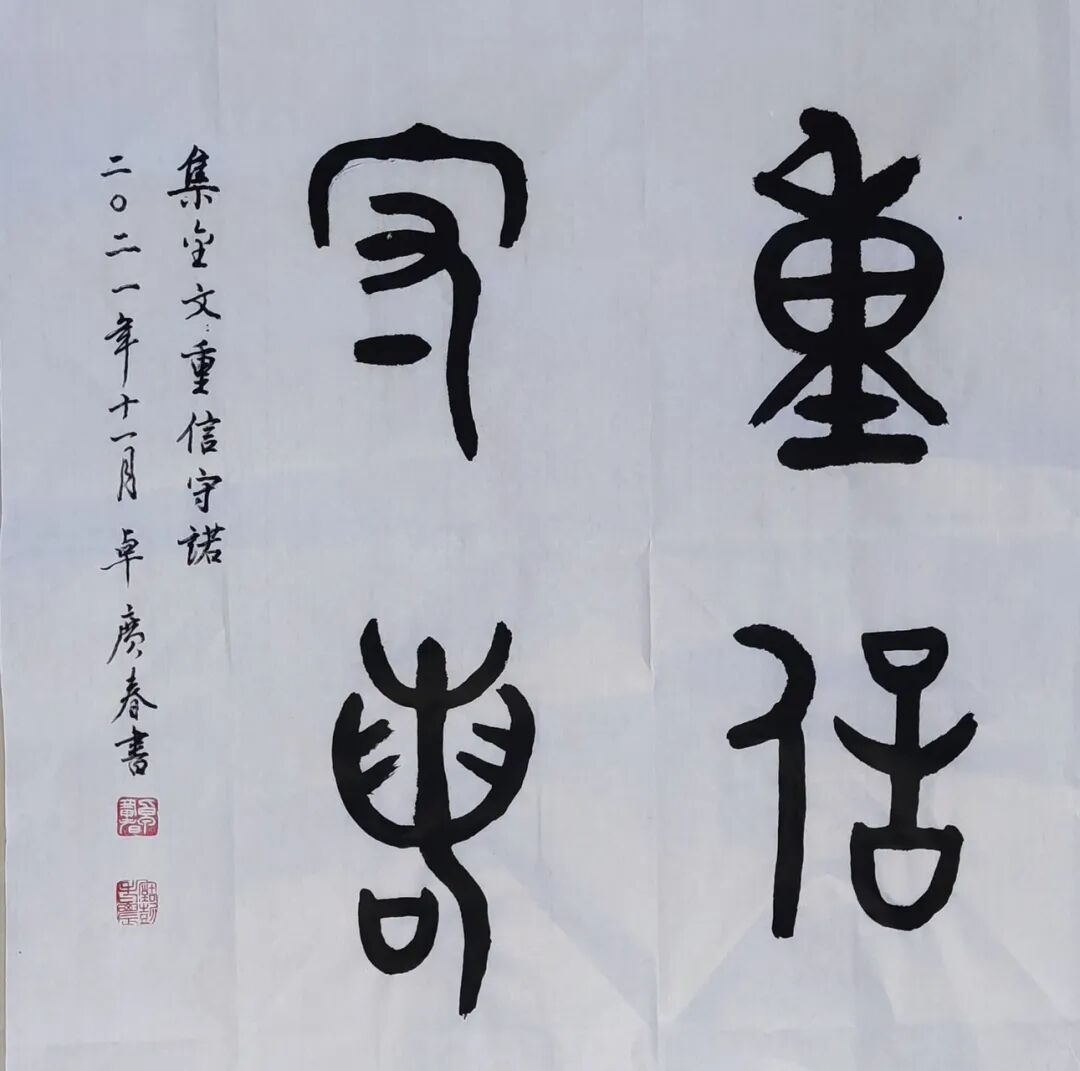 重信
守諾
集金文:重信守諾
二〇二一年十一月卓廣春書